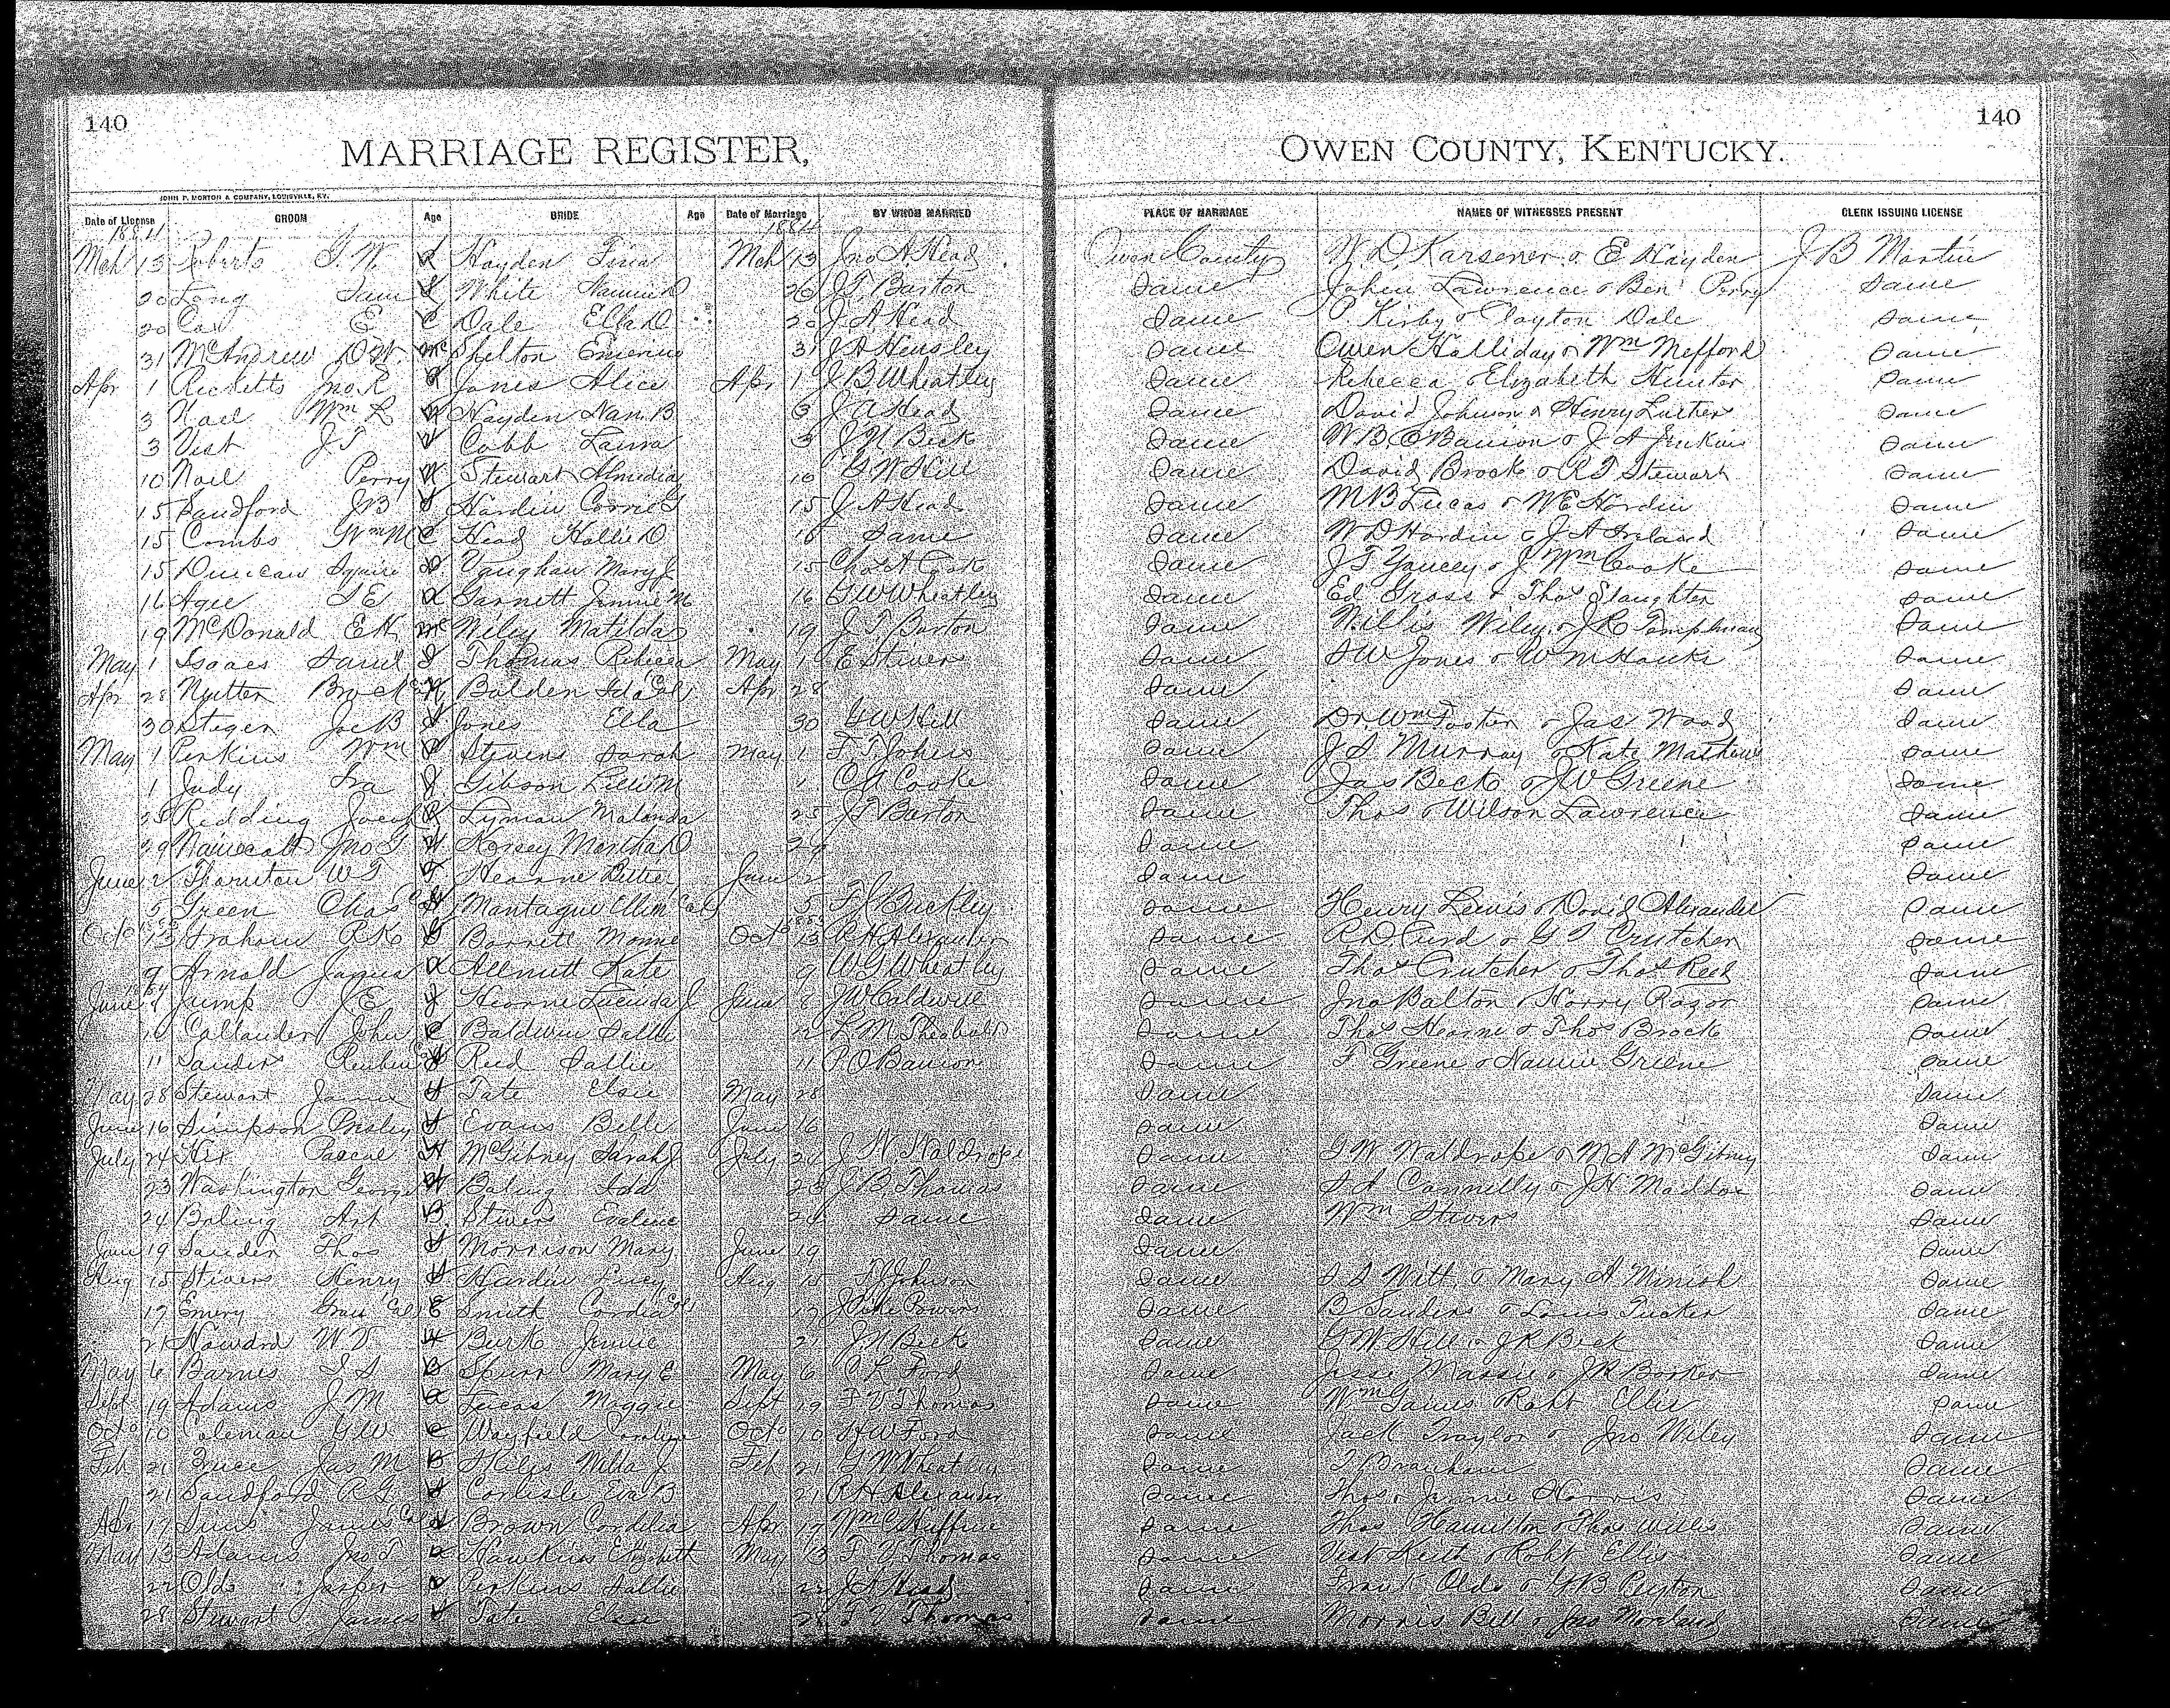 140
140
MARRIAGE REGISTER,
OWEN COUNTY, KENTUCKY.
JOHN P. MORTON & COMPANY, LOUISVILLE, KY.
Date of License GROOM Age BRIDE Age Date of Marriage BY WHOM MARRIED PLACE OF MARRIAGE NAMES OF WITNESSES PRESENT CLERK ISSUING LICENSE
1884 1884
Mch 13 Roberts R Hayden Mch 13 Jno A Head Owen County W. D Karsener & E Hayden J B Martin
20 Long Sam L White 20 J T Barton Same John Lawrence & Ben Perry Same
20 Cox E C Dale Ella D 20 J A Head Same P. Kirby & Clayton Dale Same
31 McAndrew D W. Mc Shelton 31 J A Hensley Same Owen Halliday & Wm Mefford Same
Apr 1 Ricketts Jno. R R Jones Alice Apr 1 J B Wheatley Same Rebecca & Elizabeth Hunter Same
3 Noel Wm L N Hayden Nan. B 3 J A Head Same David Johnson & Henry Luther Same
3 Vest J T V Cobb Laura 3 J N Beck Same W B O'Banion & J A Jenkins Same
10 Noel Perry N Stewart Almedia 10 G W Hill Same David Brock & R T Stewart Same
15 Sandford J B S Hardin 15 J A Head Same M B Lucas & W E Hardin Same
15 Combs Wm M C Head Hallie D 15 Same Same W D Hardin & J A Ireland Same
15 Duncan Squire D Vaughan Mary J 15 Chas A Cook Same J T Yancey & J Wm Cooke Same
16 A Garnett Jennie M 16 G W Wheatley Same Ed Gross & Thos Slaughter Same
19 McDonald E H Mc Wiley Matilda 19 J T Barton Same Willis Wiley & Same
May 1 Isaacs I Thomas Rebecca May 1 E Stivers Same Jones & Same
Apr 28 Nutter Brock N Bolden Ida Col Apr 28 Same Same
30 Steger Joe B S Jones Ella 30 G W Hill Same Dr. Wm Foster & Jas Wood Same
May 1 Perkins Wm P Stevens Sarah May 1 F T Johns Same J S Murray & Kate Same
1 Judy Ira J Gibson 1 C A Cooke Same Jas Beck & J W Greene Same
25 Redding Jacob R Lyman Malinda 25 J T Barton Same Thos & Wilson Lawrence Same
29 Jno Martha D 29 Same Same
June 2 Thornton W T T Hearne Bettie June 2 Same Same
5 Green Chas Col G Montague Ellen Col 5 Buckley Same Henry Lewis & David Alexander Same
Octo 13 Graham R K G Barrett Octo 13 R H Alexander Same R D. Curd & G T Crutcher Same
9 Arnold James A Allnutt Kate 9 W G Wheatley Same Thos Crutcher & Thos Reed Same
June 8 Jump J E J Hearne Lucinda J June 8 J W Caldwell Same Jno Balton & Harry Razor Same
10 Callander John C Baldwin Sallie 12 L M Theobald Same Thos Hearne & Thos Brock Same
11 Sanders Reuben S Reed Sallie 11 P O Banion Same F Greene & Nannie Greene Same
May 28 Stewart James S Tate Elsie May 28 Same Same
June 16 Simpson Presley S Evans Belle June 16 Same Same
July 24 Hix Pascal H McGibney Sarah J July 24 J W Waldrope Same G W Waldrope & M A McGibney Same
23 Washington George W Ida 23 J B Thomas Same S A Connelly & J H Maddox Same
24 B Stivers Evaline 24 Same Same Wm Stivers Same
June 19 Sander Thos S Morrison Mary June 19 Same Same
Aug 15 Stivers Henry S Hardin Lucy Aug 15 Johnson Same Witt & Mary A Minish Same
17 Emery Col E Smith Cordia Col 17 Powers Same B Sanders & Louis Tucker Same
21 Howard W T H Burk Jennie 21 J N Beck Same G W Hill & J R Beck Same
May 6 Barnes B Spurr Mary E May 6 C L Ford Same Jesse Massie & Same
Sept 19 Adams J M A Lucas Maggie Sept 19 F V Thomas Same Wm Gaines Robt Ellis Same
Octo 10 Coleman G W C Wayfield Caroline Octo 10 H W Ford Same Jack Traylor & Jno Wiley Same
Feb 21 Jas M B J Feb 21 G W Wheatley Same T Branham Same
21 Sandford R G S Carlisle Eva B 21 R H Alexander Same Thos & Jennie Harris Same
Apr 17 Sims James Col S Brown Cordelia Apr 17 Wm Same Thos Hamilton & Thos Willis Same
May 13 Adams Jno T A Hawkins Elizabeth May 13 F V Thomas Same Vest Keith & Robt Ellis Same
22 Olds Jasper O Perkins Sallie 22 J A Head Same Frank Olds & Peyton Same
28 Stewart James S Tate Elsie 28 F V Thomas Same Morris Bell & Jas Moreland Same